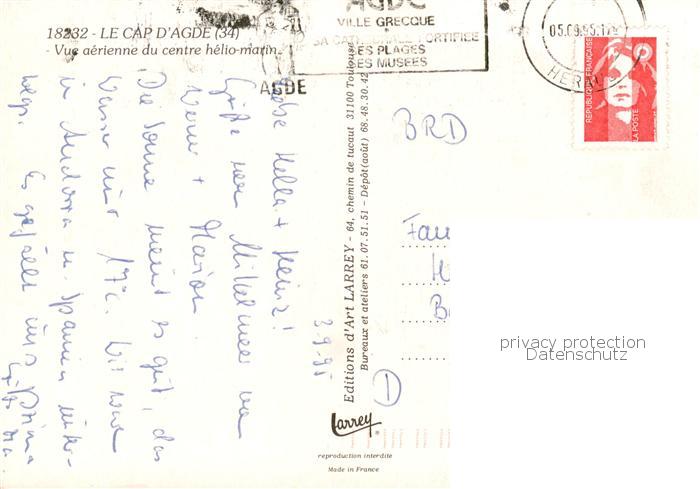 18232 - LE CAP D'AGDE (34)
- Vue aérienne du centre hélio-marin.
AGDE
VILLE GRECQUE
SA CATHEDRALE FORTIFIEE
SES PLAGES
SES MUSEES
AGDE
05.09.95.17
HERAULT
REPUBLIQUE FRANÇAISE
LA POSTE
Liebe Hella + Heinz!
Grüße vom Mittelmeer von
Werner + Marion
Die Sonne meint es gut, das
Wasser mit 17°C. Wir waren
in Andorra u. Spanien unter-
wegs. Es gefällt uns prima
3-9-95
Editions d'Art LARREY - 64, chemin de tucaut 31100 Toulouse
Bureaux et ateliers 61.07.51.51 - Dépôt(août) 68.48.30.42
BRD
Fam
D
Larrey
reproduction interdite
Made in France
privacy protection
Datenschutz